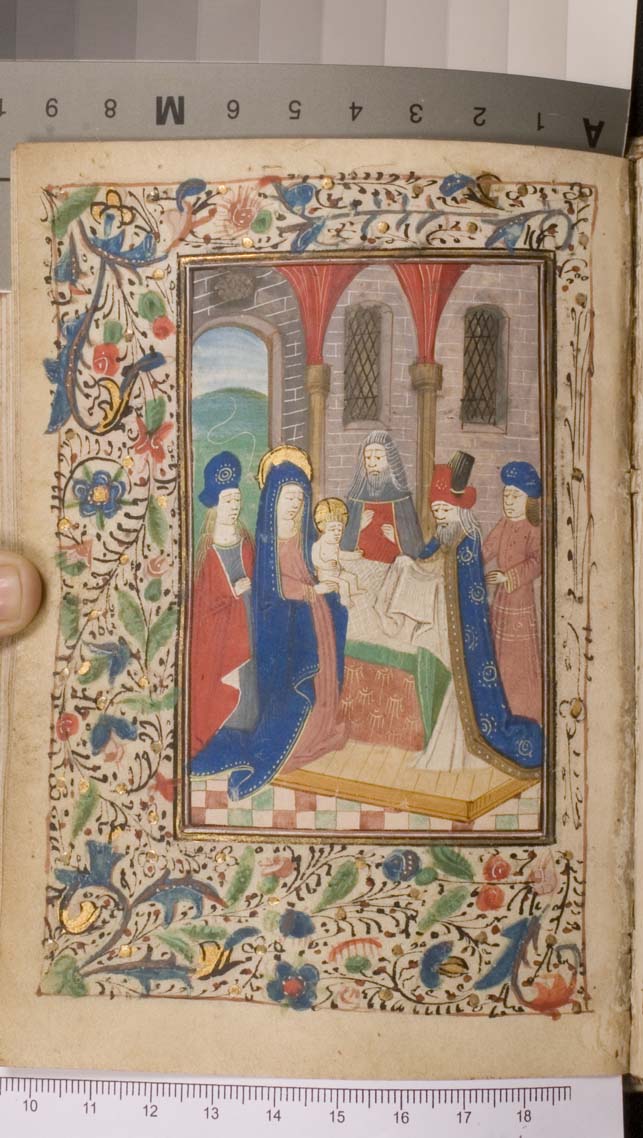 1 9 8 M 6 5 4 3 2 1 A
10 11 12 13 14 15 16 17 18